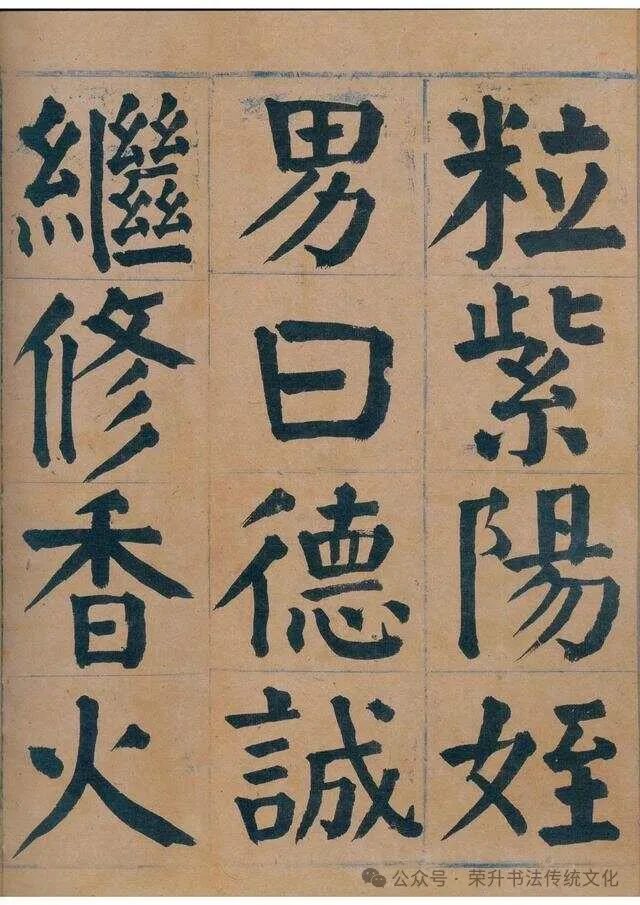 粒紫陽姪
男曰德誠
繼修香火
公众号·荣升书法传统文化